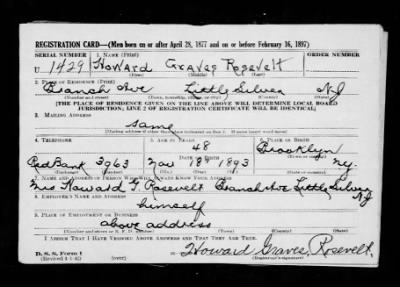 REGISTRATION CARD—(Men born on or after April 28, 1877 and on or before February 16, 1897)
SERIAL NUMBER 1. NAME (Print) ORDER NUMBER
U 1429 Howard Graves Rosevelt
(First) (Middle) (Last)
2. PLACE OF RESIDENCE (Print)
Branch Ave Little Silver NJ
(Number and street) (Town, township, village, or city) (County) (State)
[THE PLACE OF RESIDENCE GIVEN ON THE LINE ABOVE WILL DETERMINE LOCAL BOARD
JURISDICTION; LINE 2 OF REGISTRATION CERTIFICATE WILL BE IDENTICAL]
3. MAILING ADDRESS
same
[Mailing address if other than place indicated on line 2. If same insert word same]
4. TELEPHONE 5. AGE IN YEARS 6. PLACE OF BIRTH
48 Brooklyn
Red Bank 3963 DATE OF BIRTH 18th 1893 NY.
(Exchange) (Number) (Mo.) (Day) (Yr.) (State or country)
7. NAME AND ADDRESS OF PERSON WHO WILL ALWAYS KNOW YOUR ADDRESS
Mrs Howard G Rosevelt Branch Ave Little Silver NJ
8. EMPLOYER'S NAME AND ADDRESS
himself
9. PLACE OF EMPLOYMENT OR BUSINESS
above address
(Number and street or R. F. D. number) (Town) (County) (State)
I AFFIRM THAT I HAVE VERIFIED ABOVE ANSWERS AND THAT THEY ARE TRUE.
Howard Graves Rosevelt.
D. S. S. Form 1
(Revised 4-1-42) (over) (Registrant's signature)